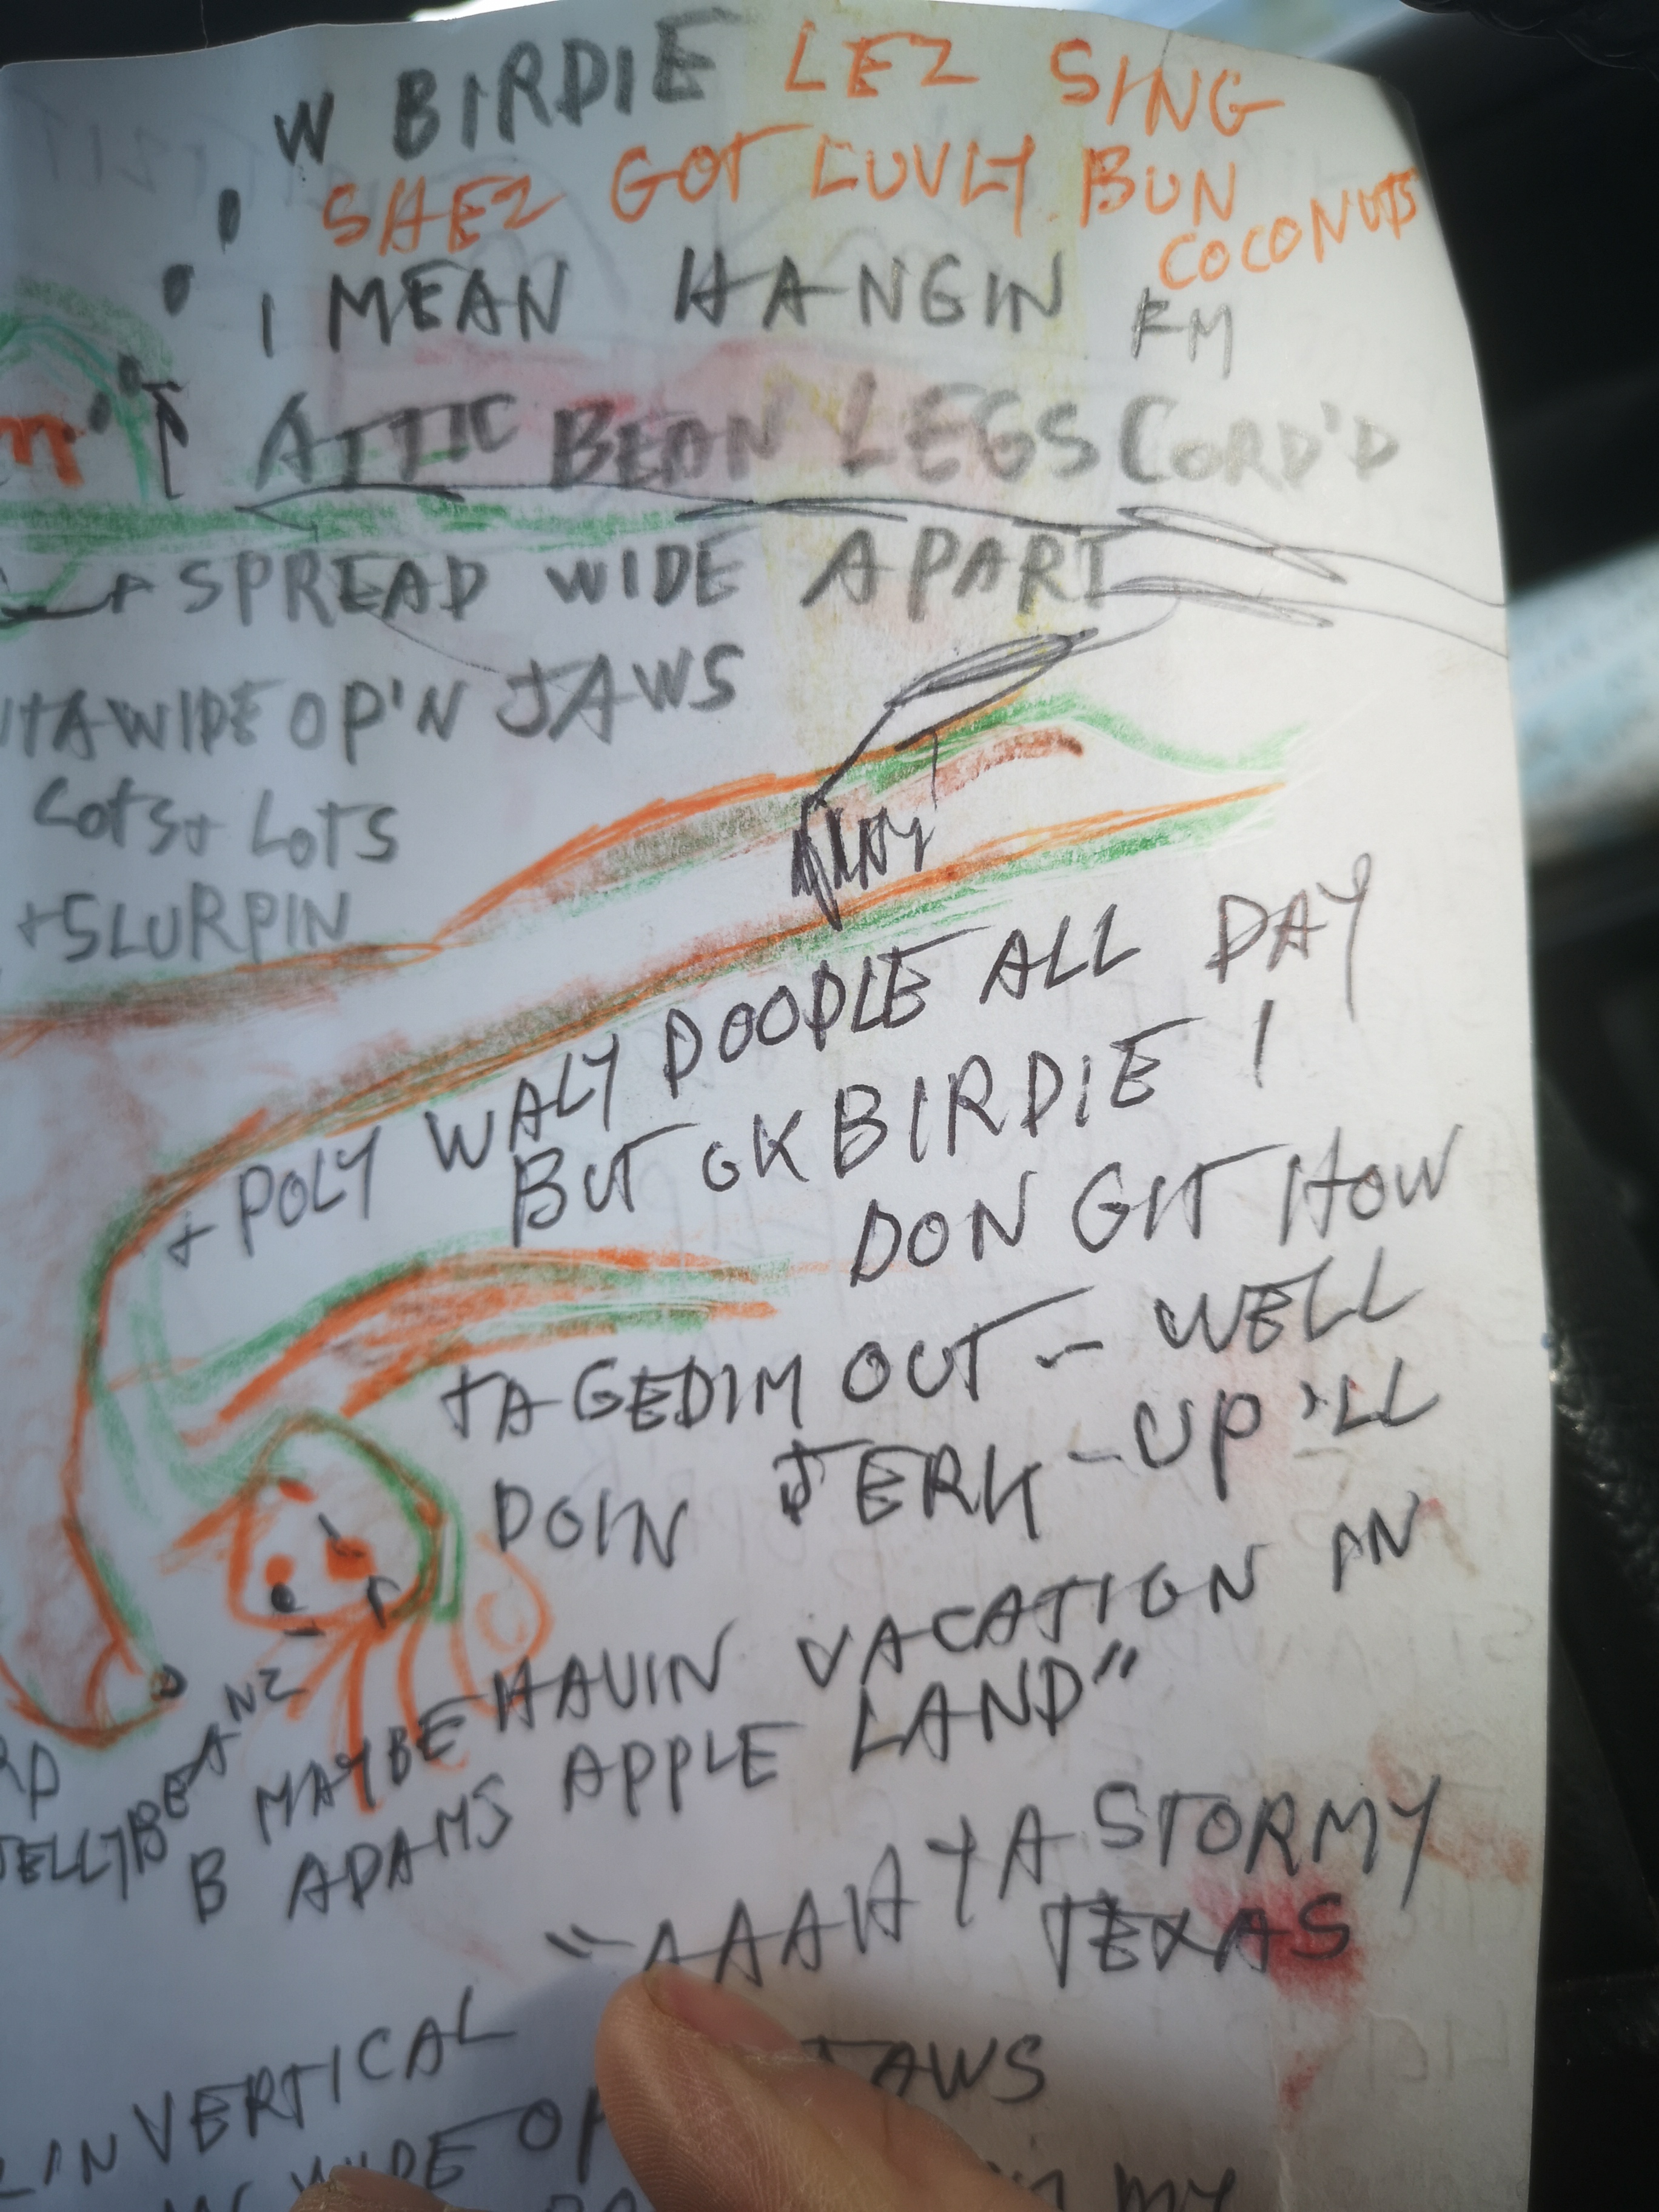 W BIRDIE LEZ SING
SHEZ GOT LUVLY BUN
COCONUTS
I MEAN HANGIN FM
ATTIC BEAN LEGS CORD'D
+ SPREAD WIDE APART
WIDE OP'N JAWS
LOTS + LOTS
+ SLURPIN
+ POLY WALY DOODLE ALL DAY
BUT OK BIRDIE I
DON GIT HOW
TA GEDIM OUT - WELL
DOIN JERK-UP 'LL
B MAYBE HAVIN VACATION AN
B ADAMS APPLE LAND"
JELLYBEANZ
"AAAH YA STORMY
TEXAS
IN VERTICAL
JAWS
WIDE
MY